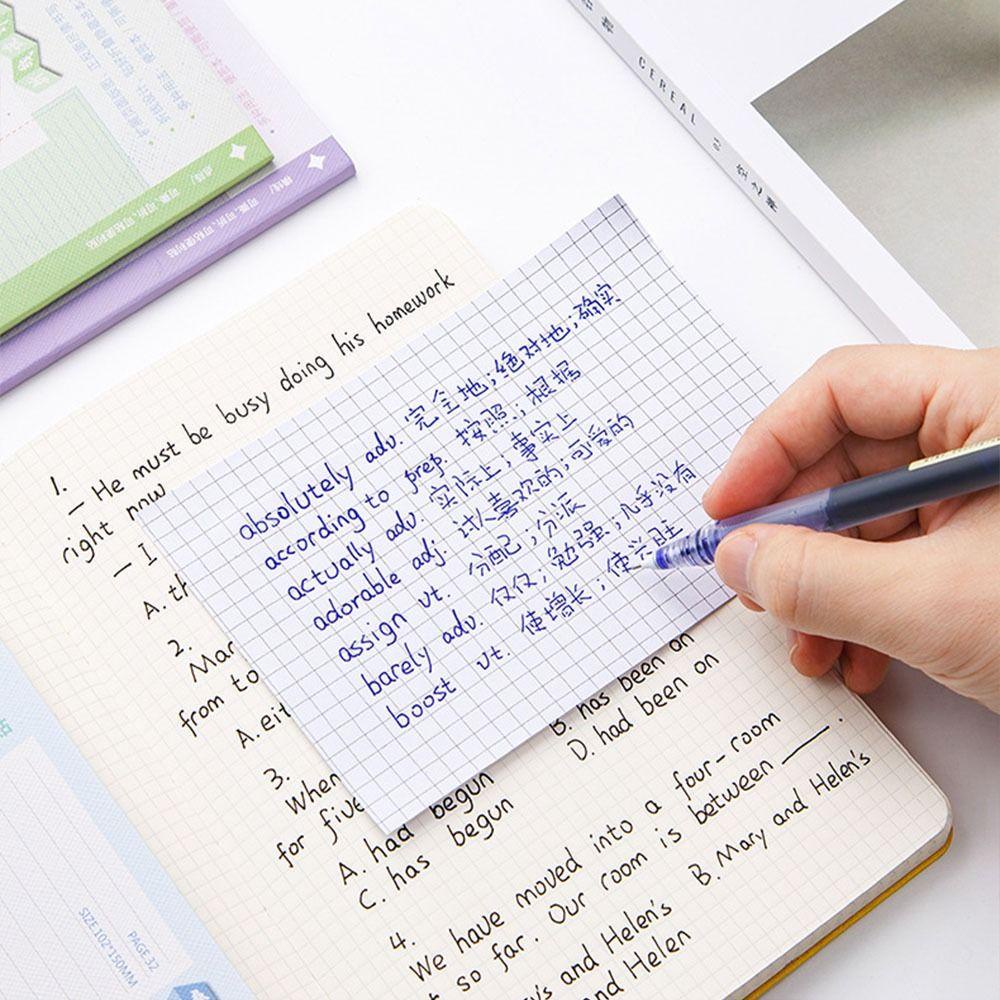 CEREAL
PAGE 32
SIZE 102*150MM
1.
— He must be busy doing his homework
right now
— I
A. th
2.
Mar
from to
A. eit
B. has been on
D. had been on
3.
When
for five
A. had begun
C. has begun
4.
We have moved into a four-room
so far. Our room is between ____.
B. Mary and Helen's
and Helen's
and Helen
absolutely adv. 完全地；绝对地；确实
according to prep. 按照；根据
actually adv. 实际上；事实上
adorable adj. 讨人喜欢的；可爱的
assign vt. 分配；分派
barely adv. 仅仅；勉强；几乎没有
boost vt. 使增长；使兴旺